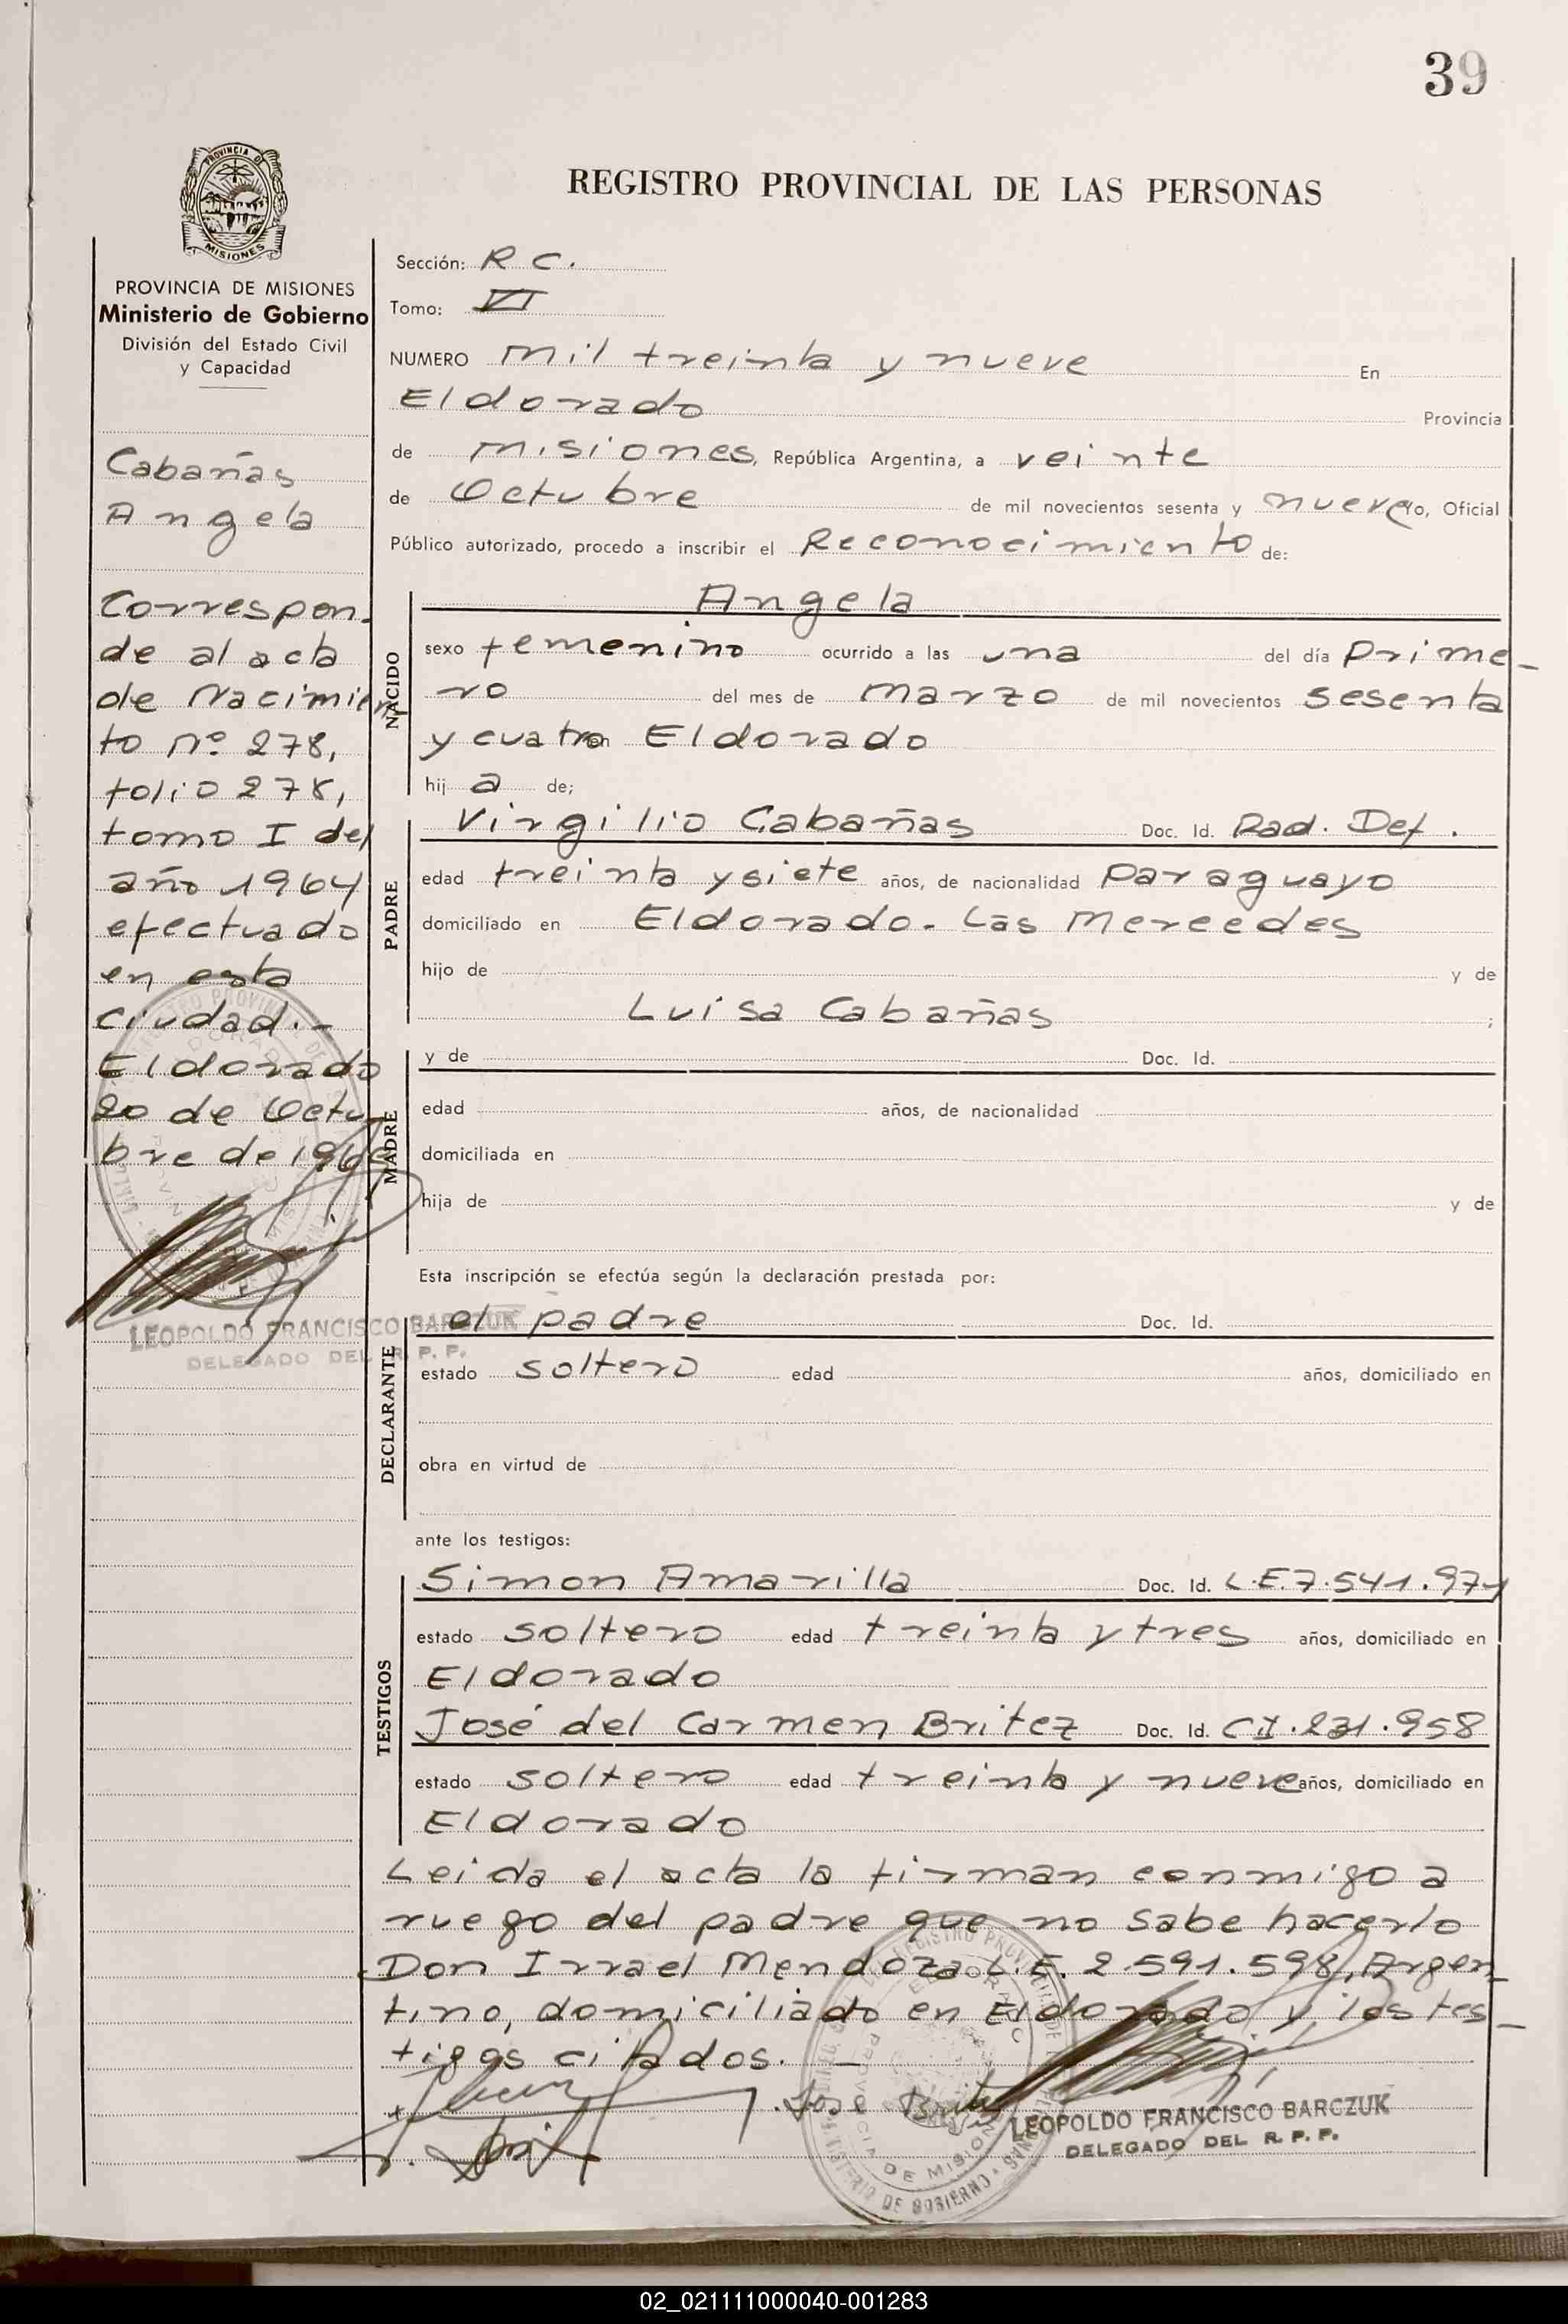 39
PROVINCIA DE
MISIONES
REGISTRO PROVINCIAL DE LAS PERSONAS
PROVINCIA DE MISIONES
Ministerio de Gobierno
División del Estado Civil
y Capacidad
Cabañas
Angela
Correspon-
de al acta
de Nacimien
to nº 278,
folio 278,
tomo I del
año 1964
efectuado
en esta
ciudad.-
Eldorado
20 de Octu
bre de 1969
LEOPOLDO FRANCISCO BARCZUK
DELEGADO DEL R. P. P.
Sección: R C.
Tomo: VI
NUMERO mil treinta y nueve En
Eldorado Provincia
de misiones, República Argentina, a veinte
de Octubre de mil novecientos sesenta y nueve yo, Oficial
Público autorizado, procedo a inscribir el Reconocimiento de:
NACIDO
Angela
sexo femenino ocurrido a las una del día prime-
ro del mes de marzo de mil novecientos sesenta
y cuatro en Eldorado
hij a de;
PADRE
Virgilio Cabañas Doc. Id. Rad. Def.
edad treinta y siete años, de nacionalidad paraguayo
domiciliado en Eldorado. Las Mercedes
hijo de y de
Luisa Cabañas ;
MADRE
y de Doc. Id.
edad años, de nacionalidad
domiciliada en
hija de y de
Esta inscripción se efectúa según la declaración prestada por:
DECLARANTE
el padre Doc. Id.
estado soltero edad años, domiciliado en
obra en virtud de
ante los testigos:
TESTIGOS
Simon Amarilla Doc. Id. L.E.7.541.971
estado soltero edad treinta y tres años, domiciliado en
Eldorado
José del Carmen Britez Doc. Id. C.I.231.958
estado soltero edad treinta y nueve años, domiciliado en
Eldorado
Leida el acta la firman conmigo a
ruego del padre que no sabe hacerlo
Don Irrael Mendoza L.E. 2.591.598, Argen-
tino, domiciliado en Eldorado y los tes-
tigos citados. -
Jose Britez
LEOPOLDO FRANCISCO BARCZUK
DELEGADO DEL R. P. P.
02_021111000040-001283